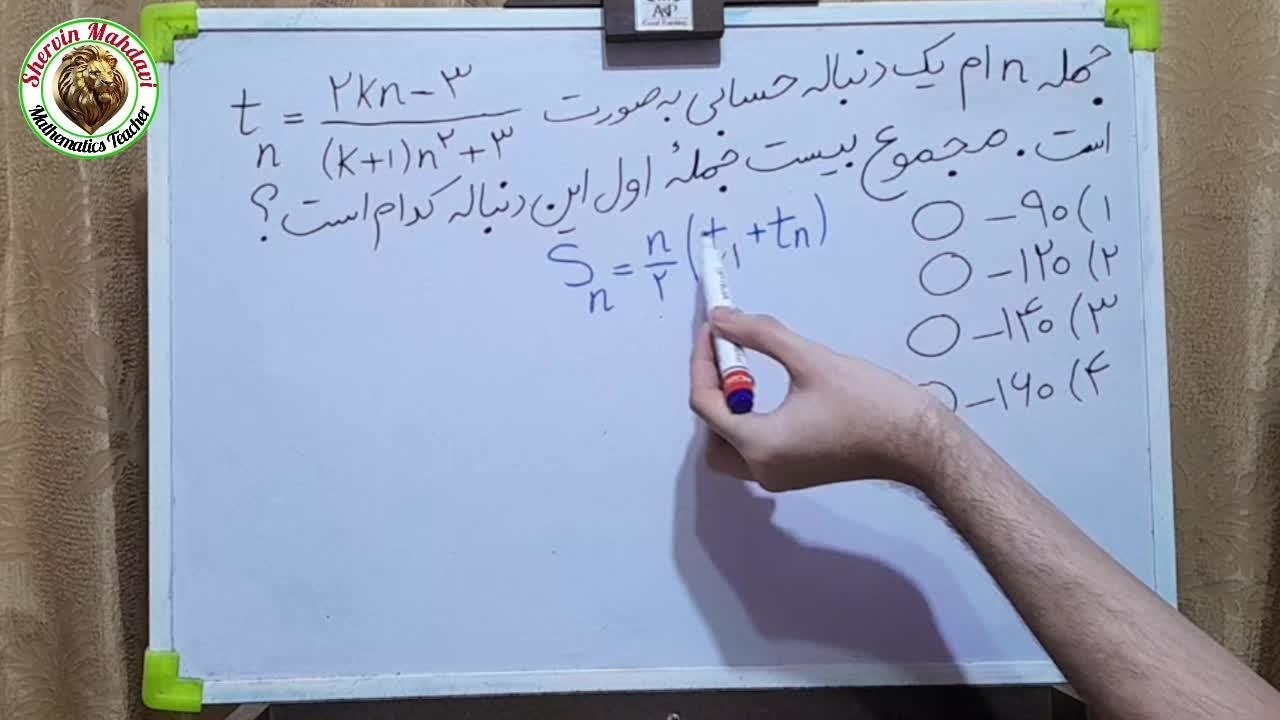 Shervin Mahdavi
Mathematics Teacher
A&P
جمله n ام یک دنباله حسابی به صورت t_n = (۲kn − ۳) / ((k+۱)n^۲ + ۳)
است . مجموع بیست جملهٔ اول این دنباله کدام است ؟
S_n = n/۲ (t_۱ + t_n)
۱) −۹۰
۲) −۱۲۰
۳) −۱۴۰
۴) −۱۶۰